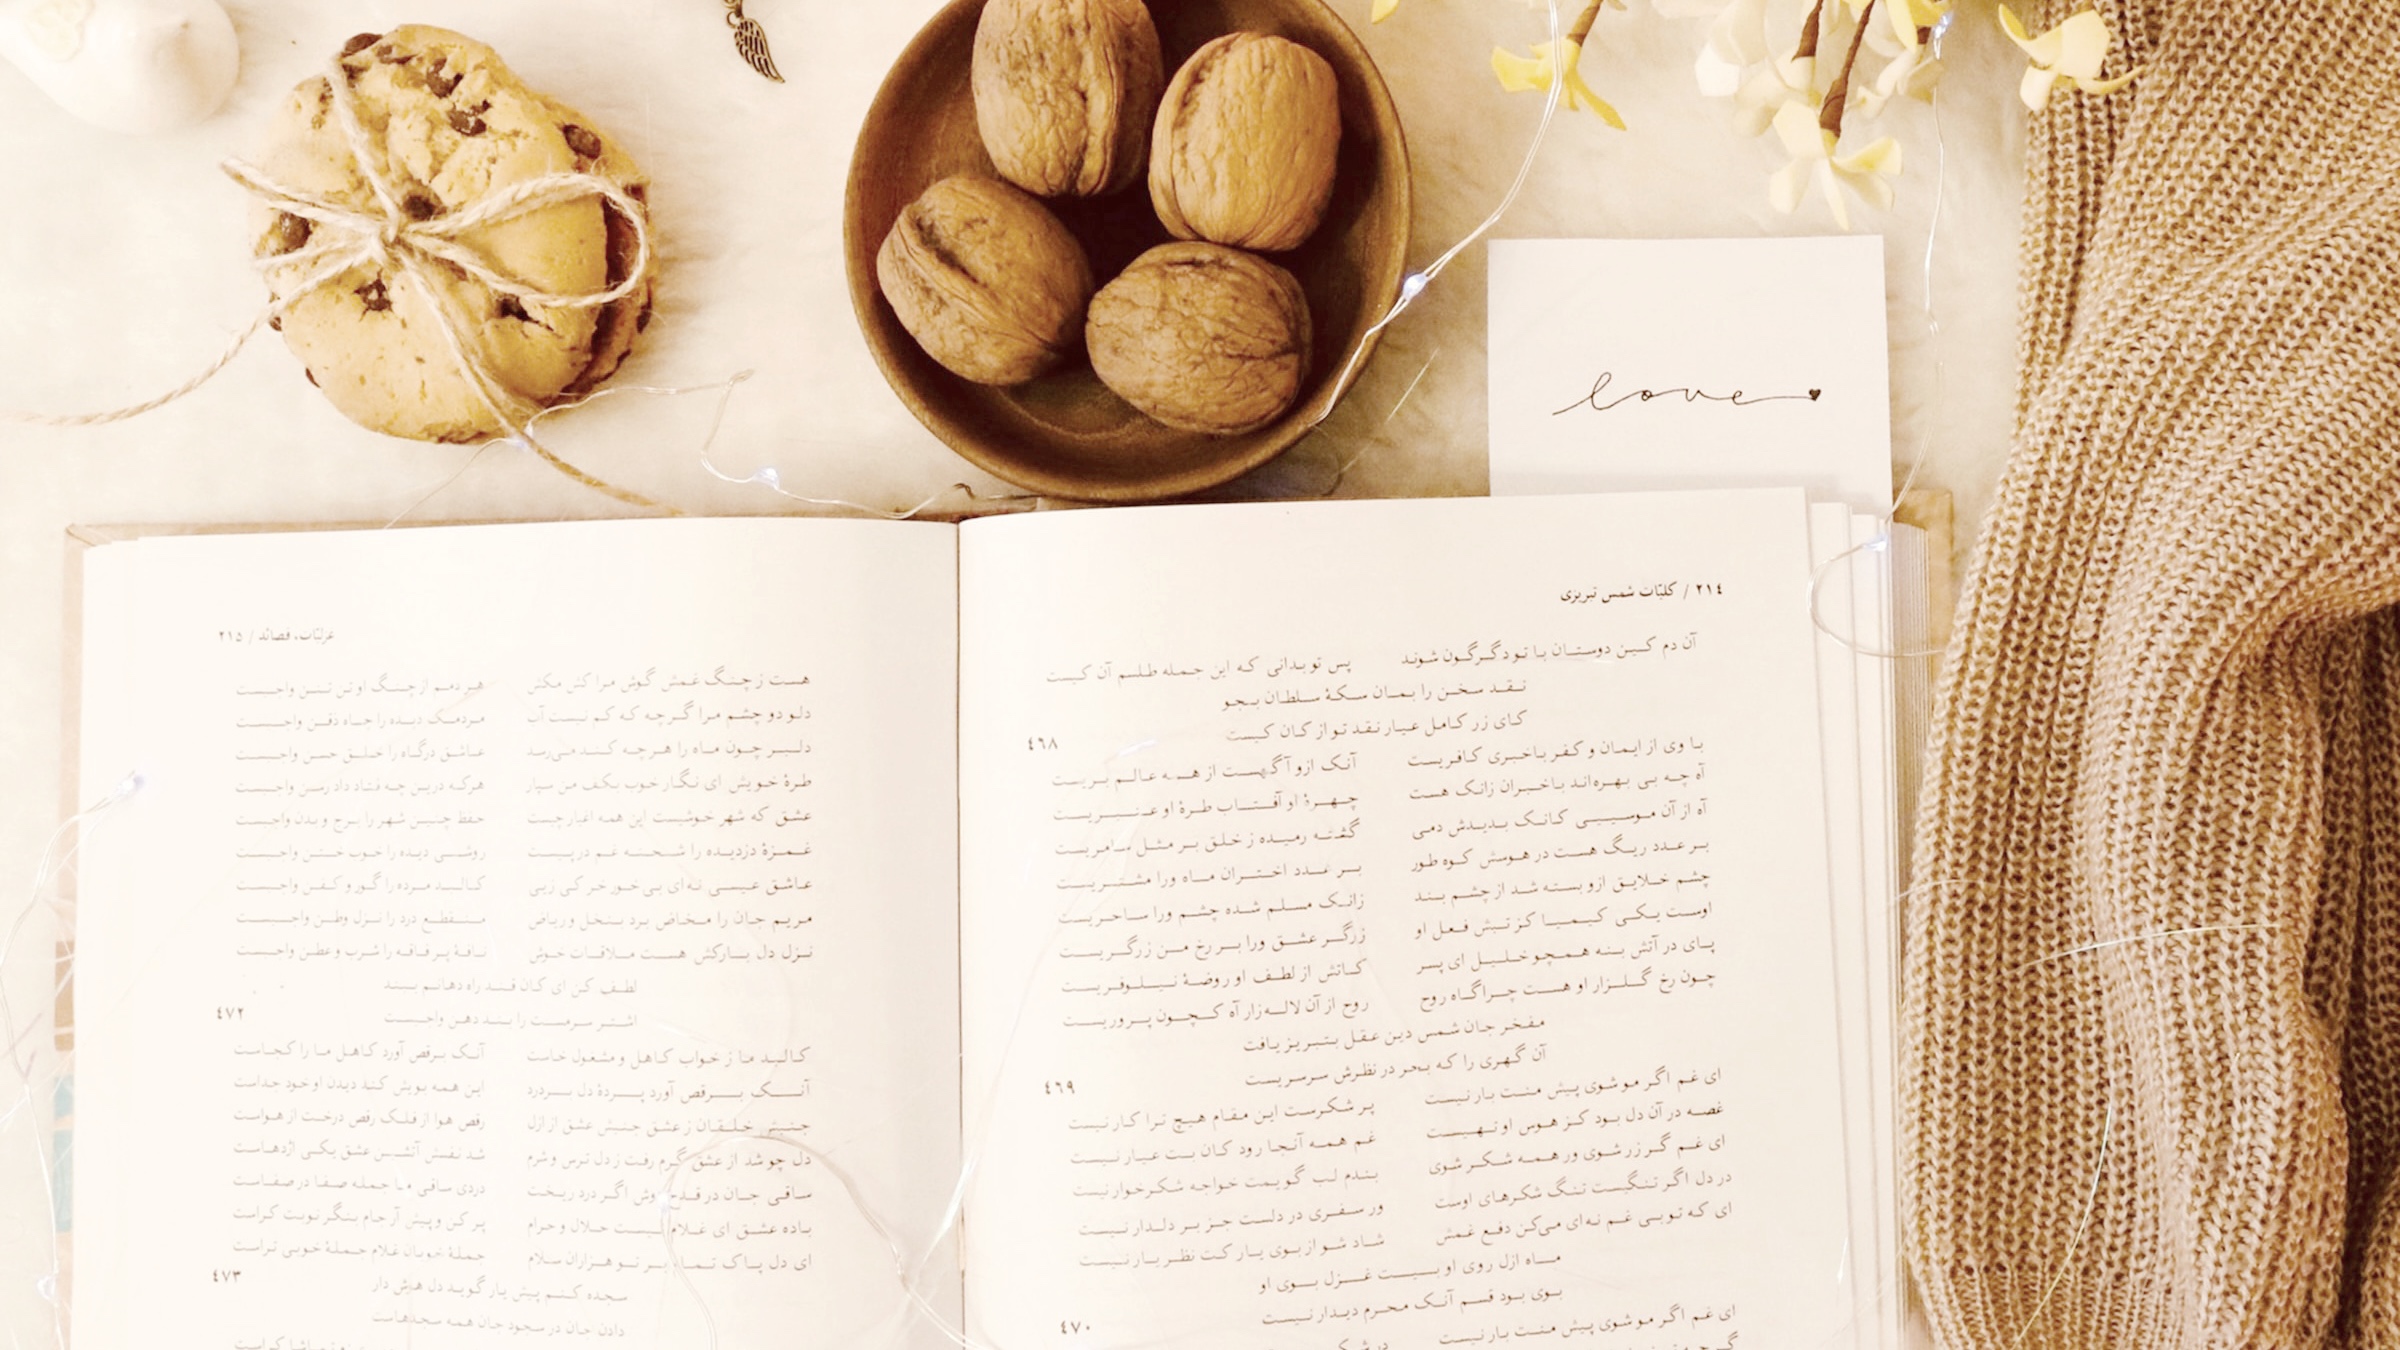 love
٢١٤ / کلیّات شمس تبریزی
آن دم کین دوستان با تو دگرگون شوند پس تو بدانی که این جمله طلسم آن کیست
نقد سخن را بمان سکهٔ سلطان بجو
کای زر کامل عیار نقد تو از کان کیست
٤٦٨
با وی از ایمان و کفر باخبری کافریست آنک ازو آگهست از همه عالم بریست
آه چه بی بهره‌اند باخبران زانک هست چهرهٔ او آفتاب طرهٔ او عنبریست
آه از آن موسیی کانک بدیدش دمی گشته رمیده ز خلق بر مثل سامریست
بر عدد ریگ هست در هوسش کوه طور بر عدد اختران ماه ورا مشتریست
چشم خلایق ازو بسته شد از چشم بند زانک مسلم شده چشم ورا ساحریست
اوست یکی کیمیا کز تبش فعل او زرگر عشق ورا بر رخ من زرگریست
پای در آتش بنه همچو خلیل ای پسر کاتش از لطف او روضهٔ نیلوفریست
چون رخ گلزار او هست چراگاه روح روح از آن لاله‌زار آه کچون پروریست
مفخر جان شمس دین عقل بتبریز یافت
آن گهری را که بحر در نظرش سرسریست
٤٦٩
ای غم اگر مو شوی پیش منت بار نیست پر شکرست این مقام هیچ ترا کار نیست
غصه در آن دل بود کز هوس او تهیست غم همه آنجا رود کان بت عیار نیست
ای غم گر زر شوی ور همه شکر شوی بندم لب گویمت خواجه شکرخوار نیست
در دل اگر تنگیست تنگ شکرهای اوست ور سفری در دلست جز بر دلدار نیست
ای که تو بی غم نه‌ای می‌کن دفع غمش شاد شو از بوی یار کت نظر یار نیست
ماه ازل روی او بیت غزل بوی او
بوی بود قسم آنک محرم دیدار نیست
٤٧٠
ای غم اگر مو شوی پیش منت بار نیست
غزلیّات، قصائد / ٢١٥
هست ز چنگ غمش گوش مرا کش مکش هر دمم از چنگ او تن تنن واجبست
دلو دو چشم مرا گرچه که کم نیست آب مردمک دیده را چاه ذقن واجبست
دلبر چون ماه را هرچه کند می‌رسد عاشق درگاه را خلق حسن واجبست
طرهٔ خویش ای نگار خوب بکف من سپار هرکه درین چه فتاد داد رسن واجبست
عشق که شهر خوشیست این همه اغیار چیست حفظ چنین شهر را برج و بدن واجبست
غمزهٔ دزدیده را شحنه غم در پیست روشنی دیده را خوب ختن واجبست
عاشق عیسی نه‌ای بی‌خور خر کی زیی کالبد مرده را گور و کفن واجبست
مریم جان را مخاض برد بنخل و ریاض منقطع درد را نزل وطن واجبست
نزل دل بارکش هست ملاقات خوش ناقهٔ پر فاقه را شرب و عطن واجبست
لطف کن ای کان قند راه دهانم ببند
اشتر سرمست را بند دهن واجبست
٤٧٢
کالبد ما ز خواب کاهل و مشغول خاست آنک برقص آورد کاهل ما را کجاست
آنک برقص آورد پردهٔ دل بردرد این همه بویش کند دیدن او خود جداست
جنبش خلقان ز عشق جنبش عشق از ازل رقص هوا از فلک رقص درخت از هواست
دل چو شد از عشق گرم رفت ز دل ترس و شرم شد نفسش آتشین عشق یکی اژدهاست
ساقی جان در قدح دوش اگر درد ریخت دردی ساقی ما جمله صفا در صفاست
باده عشق ای غلام نیست حلال و حرام پر کن و پیش آر جام بنگر نوبت کراست
ای دل پاک تمام بر تو هزاران سلام جملهٔ خوبان غلام جملهٔ خوبی تراست
سجده کنم پیش یار گوید دل هش دار
دادن جان در سجود جان همه سجدهاست
٤٧٣